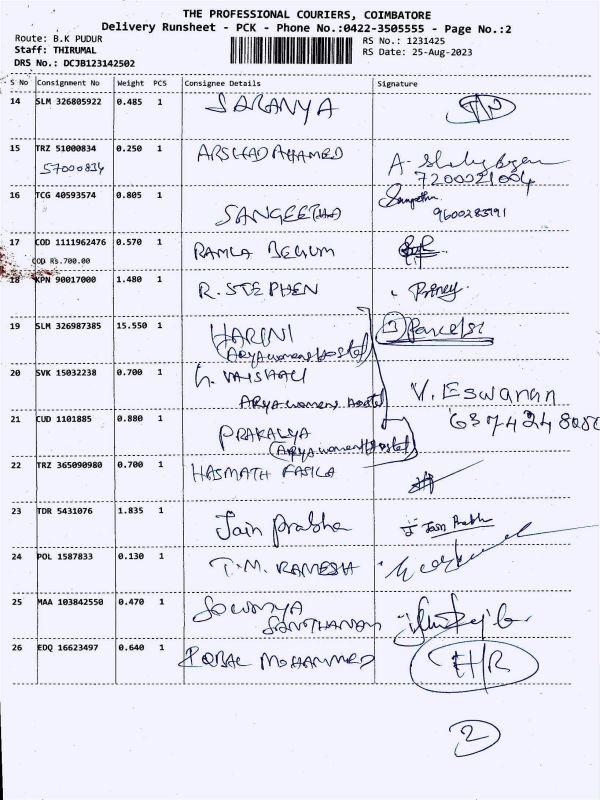 THE PROFESSIONAL COURIERS, COIMBATORE
Delivery Runsheet - PCK - Phone No.:0422-3505555 - Page No.:2
Route: B.K PUDUR
RS No.: 1231425
Staff: THIRUMAL
RS Date: 25-Aug-2023
DRS No.: DCJB123142502
S No Consignment No Weight PCS Consignee Details Signature
14 SLM 326805922 0.485 1 SARANYA
15 TRZ 51000834 0.250 1 ARSHAD AHAMED
57000834 7200021004
16 TCG 40593574 0.805 1 SANGEETHA
9600283991
17 COD 1111962476 0.570 1 RAMLA BEGUM
COD Rs.700.00
18 KPN 90017000 1.480 1 R. STEPHEN
19 SLM 326987385 15.550 1 HARINI Parcels
(ARYA womens Hostel
20 SVK 15032238 0.700 1 VAISHALI V. ESWARAN
ARYA womens Hostel
21 CUD 1101885 0.880 1 PRAKALYA
(ARYA womens Hostel)
22 TRZ 365090980 0.700 1 HASMATH FASILA
23 TDR 5431076 1.835 1 Jain Prabha J Jain Prabh
24 POL 1587833 0.130 1 T.M. RAMESH
25 MAA 103842550 0.470 1 SOWMYA
SANTHANAM
26 EDQ 16623497 0.640 1 IQBAL MOHAMMED
2